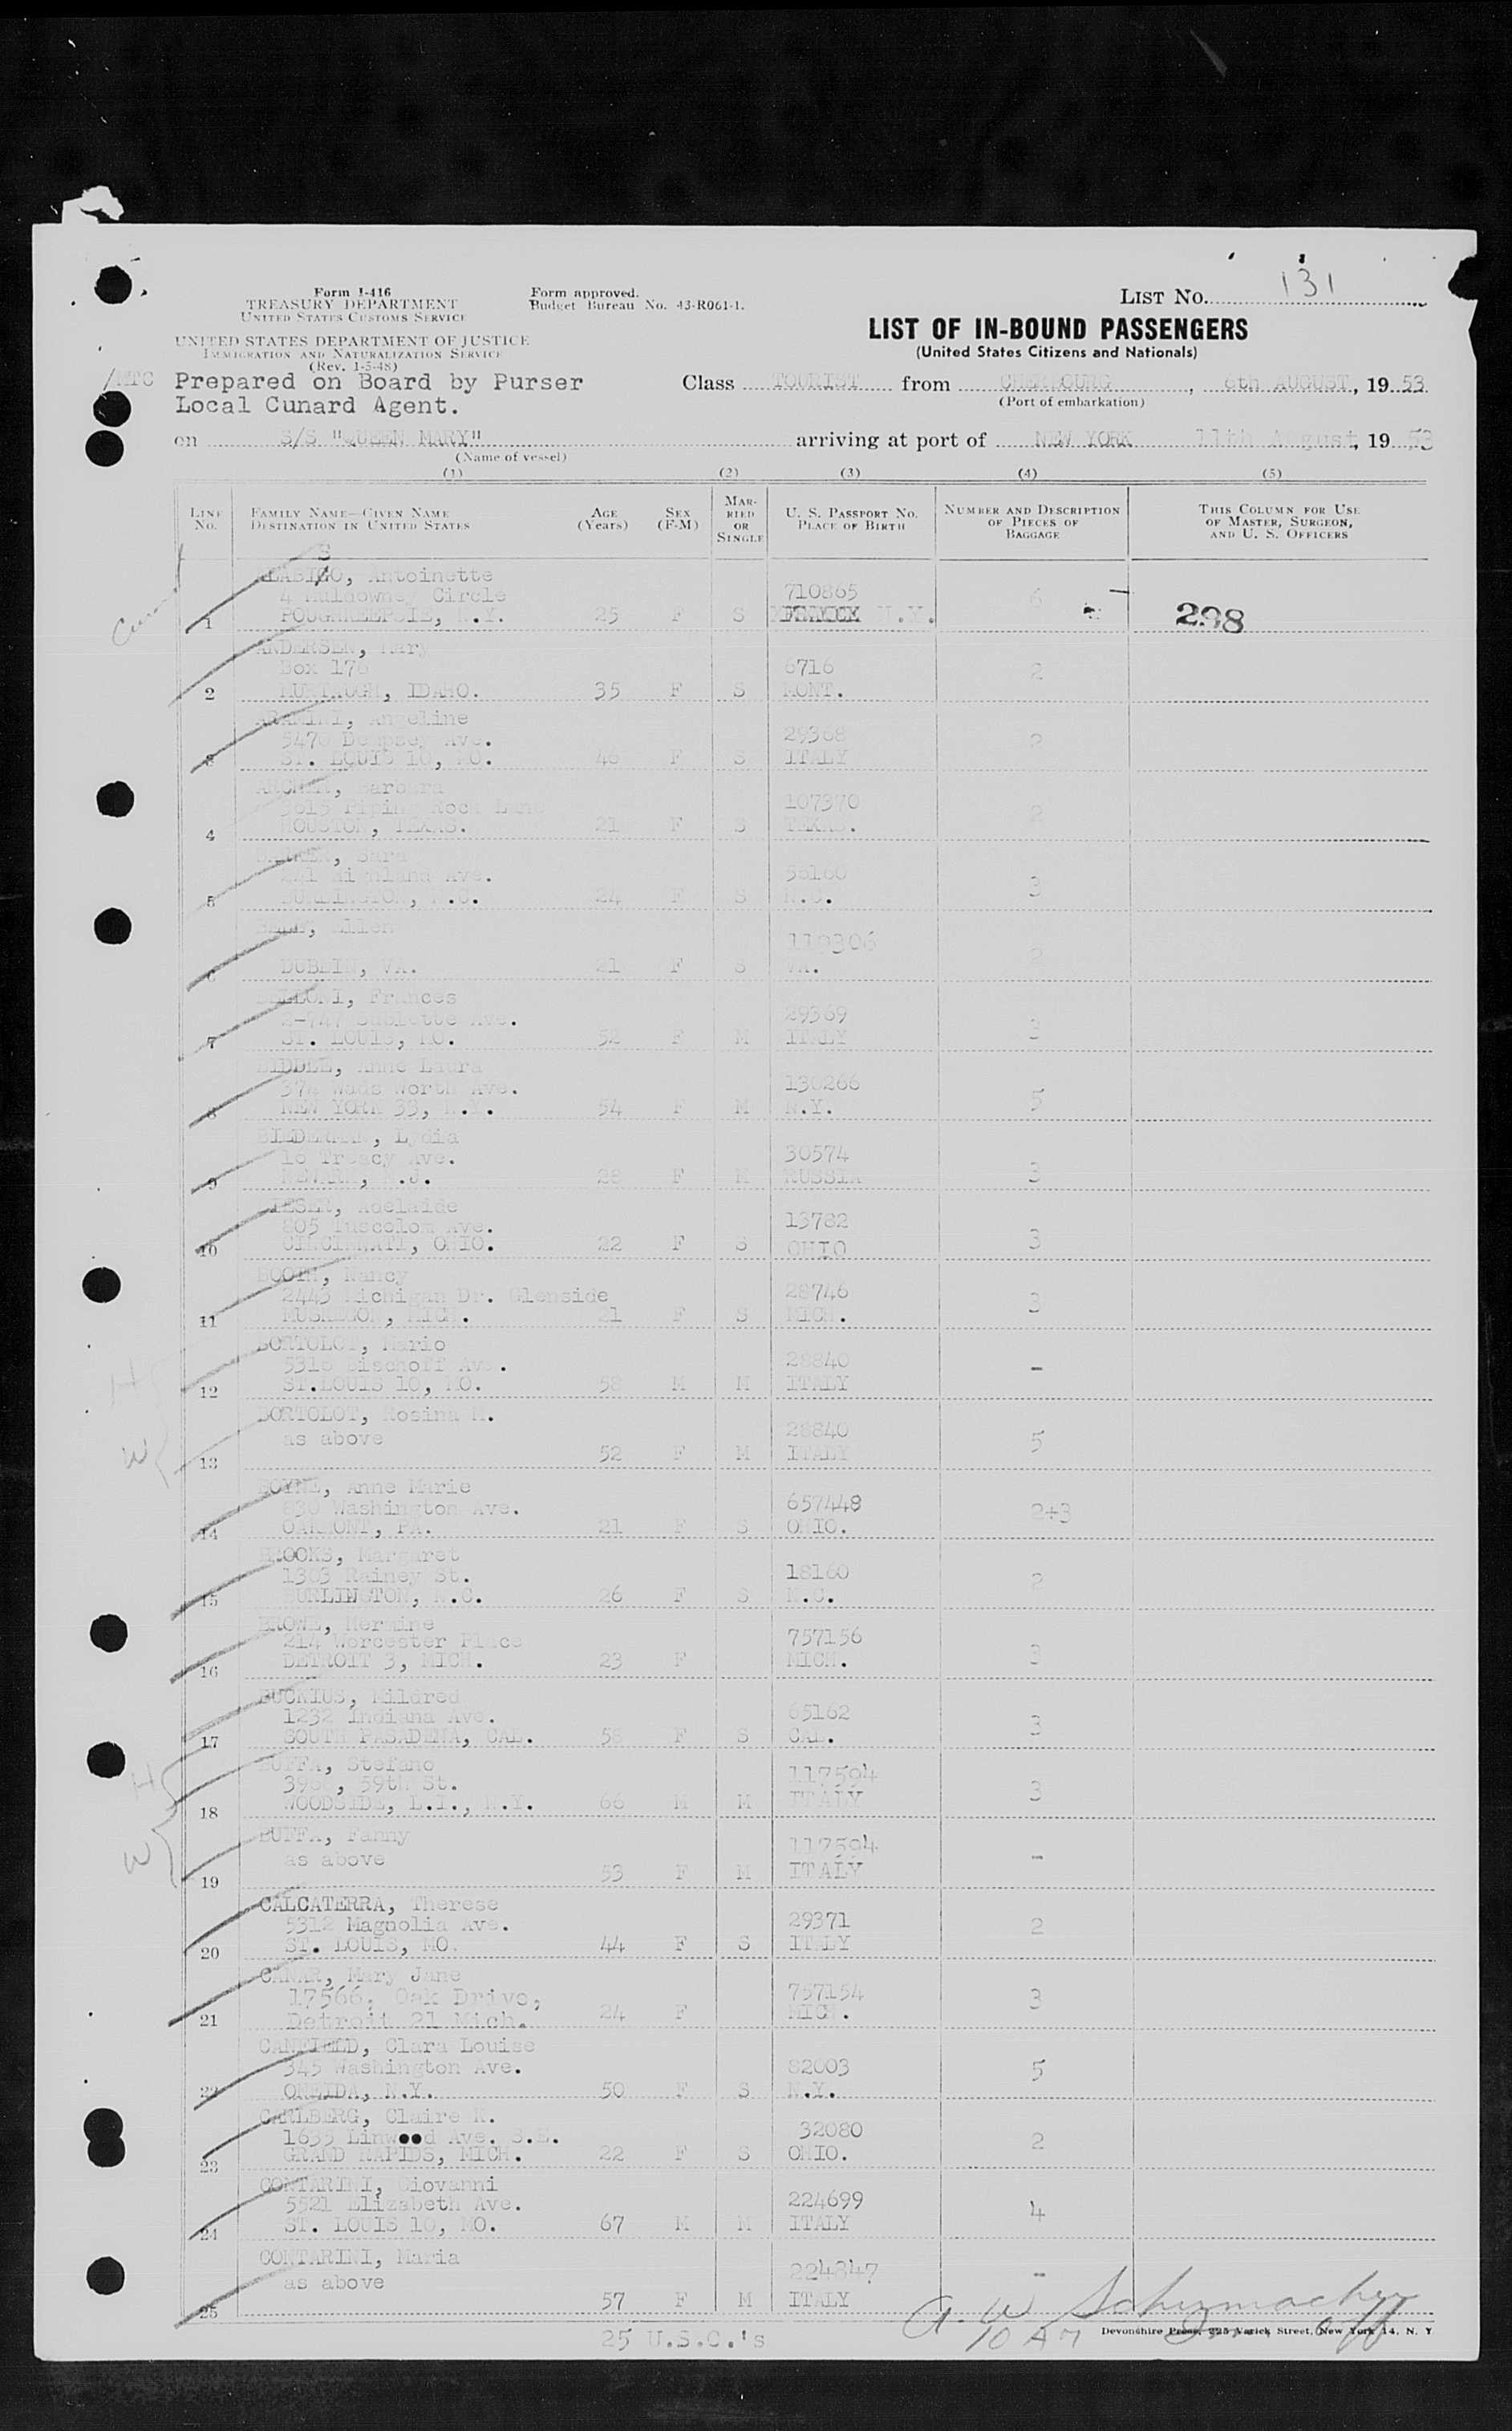 131
Form I-416
TREASURY DEPARTMENT
UNITED STATES CUSTOMS SERVICE
Form approved.
Budget Bureau No. 43-R061-1.
LIST NO.
UNITED STATES DEPARTMENT OF JUSTICE
IMMIGRATION AND NATURALIZATION SERVICE
(Rev. 1-5-48)
LIST OF IN-BOUND PASSENGERS
(United States Citizens and Nationals)
/MTC Prepared on Board by Purser
Local Cunard Agent.
Class TOURIST from CHERBOURG, 6th AUGUST, 19 53
(Port of embarkation)
on S/S "QUEEN MARY" arriving at port of NEW YORK 11th August, 19 53
(Name of vessel)
(1) (2) (3) (4) (5)
LINE No. FAMILY NAME—GIVEN NAME DESTINATION IN UNITED STATES AGE (Years) SEX (F-M) MARRIED OR SINGLE U. S. PASSPORT NO. PLACE OF BIRTH NUMBER AND DESCRIPTION OF PIECES OF BAGGAGE THIS COLUMN FOR USE OF MASTER, SURGEON, AND U. S. OFFICERS
Antoinette
4 Muldowney Circle 710865 6
1 POUGHKEEPSIE, N.Y. 25 F S N.Y. 298
ANDERSEN, Mary
Box 176 6716 2
2 MURTAUGH, IDAHO. 35 F S MONT.
ARAMINI, Angeline
5470 Dempsey Ave. 29368 2
3 ST. LOUIS 10, MO. 46 F S ITALY
ARCHER, Barbara
Piping Rock Lane 107370 2
4 HOUSTON, TEXAS. 21 F S TEXAS.
Sara
Highland Ave. 3
5 BURLINGTON, N.C. 24 F S N.C.
Ellen
110306 2
6 DUBLIN, VA. 21 F S VA.
BELLONI, Frances
Sublette Ave. 29369 3
7 ST. LOUIS, MO. 52 F M ITALY
BIDDLE, Anne Laura
374 Wads Worth Ave. 130266 5
8 NEW YORK 33, N.Y. 54 F M N.Y.
BIEDERMAN, Lydia
16 Treacy Ave. 30574
9 NEWARK, N.J. 28 F M RUSSIA 3
Adelaide
805 Tuscolom Ave. 13782
10 CINCINNATI, OHIO. 22 F S OHIO 3
Nancy
2443 Michigan Dr. Glenside 28746 3
11 MUSKEGON, MICH. 21 F S MICH.
BORTOLOT, Mario
5316 Bischoff Ave. 28840 -
12 ST.LOUIS 10, MO. 58 M M ITALY
BORTOLOT, Rosina M.
as above 28840 5
13 52 F M ITALY
BOYNE, Anne Marie
830 Washington Ave. 657448 2+3
14 OAKMONT, PA. 21 F S OHIO.
BROOKS, Margaret
1303 Rainey St. 18160 2
15 BURLINGTON, N.C. 26 F S N.C.
BROWE, Hermine
214 Worcester Place 757156 3
16 DETROIT 3, MICH. 23 F MICH.
BUCKIUS, Mildred
1232 Indiana Ave. 65162 3
17 SOUTH PASADENA, CAL. 58 F S CAL.
BUFFA, Stefano
59th St. 117594 3
18 WOODSIDE, L.I., N.Y. 66 M M ITALY
BUFFA, Fanny
as above 117594 -
19 53 F M ITALY
CALCATERRA, Therese
5312 Magnolia Ave. 29371 2
20 ST. LOUIS, MO. 44 F S ITALY
CANAR, Mary Jane
17566, Oak Drive, 757154 3
21 Detroit 21 Mich. 24 F MICH.
CANFIELD, Clara Louise
345 Washington Ave. 82003 5
22 ONEIDA, N.Y. 50 F S N.Y.
CARLBERG, Claire K.
1635 Linwood Ave. S.E. 32080 2
23 GRAND RAPIDS, MICH. 22 F S OHIO.
CONTARINI, Giovanni
5521 Elizabeth Ave. 224699 4
24 ST. LOUIS 10, MO. 67 M M ITALY
CONTARINI, Maria
as above 224847 -
25 57 F M ITALY
A. W. Schumacher
25 U.S.C.'s
Devonshire Press, 225 Varick Street, New York 14, N. Y
H
W
H
W